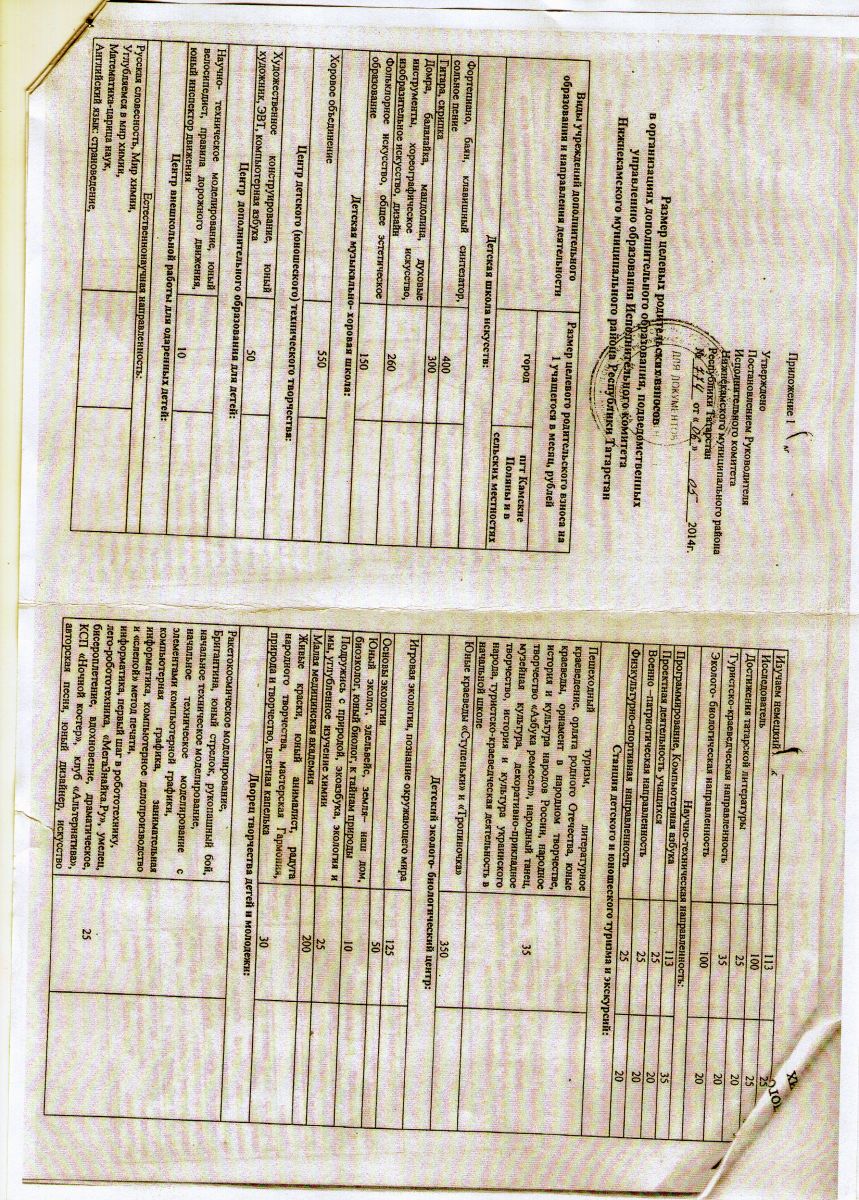 Приложение 1
Утверждено
Постановлением Руководителя
Исполнительного комитета
Нижнекамского муниципального района
Республики Татарстан
от « 06 » 05 2014г.
ДЛЯ ДОКУМЕНТОВ
Размер целевых родительских взносов
в организациях дополнительного образования, подведомственных
управлению образования Исполнительного Комитета
Нижнекамского муниципального района Республики Татарстан
Виды учреждений дополнительного образования и направления деятельности
Размер целевого родительского взноса на 1 учащегося в месяц, рублей
город
пгт Камские Поляны и в сельских местностях
Детская школа искусств:
Фортепиано, баян, клавишный синтезатор, сольное пение
Гитара, скрипка 400
Домра, балалайка, мандолина, духовые инструменты, хореографическое искусство, изобразительное искусство, дизайн 300
Фольклорное искусство, общее эстетическое образование 260
Детская музыкально- хоровая школа: 150
Хоровое объединение 550
Центр детского (юношеского) технического творчества:
Художественное конструирование, юный художник, ЭВТ, компьютерная азбука 50
Центр дополнительного образования для детей:
Научно- техническое моделирование, юный велосипедист, правила дорожного движения, юный инспектор движения 10
Центр внешкольной работы для одаренных детей:
Естественнонаучная направленность:
Русская словесность, Мир химии,
Углубляемся в мир химии,
Математика-царица наук,
Английский язык: страноведение,
Изучаем немецкий
Исследователь 113 25
Достижения татарской литературы 100 25
Туристско-краеведческая направленность 25 20
Эколого- биологическая направленность 35 20
100 20
Научно-техническая направленность:
Программирование, Компьютерная азбука 113 35
Проектная деятельность учащихся 25 20
Военно –патриотическая направленность 25 20
Физкультурно-спортивная направленность 25 20
Станция детского и юношеского туризма и экскурсий:
Пешеходный туризм, литературное
краеведение, орлята родного Отечества, юные
краеведы, орнамент в народном творчестве,
история и культура народов России, народное
творчество «Азбука ремесел», народный танец,
музейная культура, декоративно-прикладное
творчество, история и культура украинского
народа, туристско-краеведческая деятельность в
начальной школе 35
Юные краеведы «Ступеньки» и «Тропиночка»
350
Детский эколого- биологический центр:
Игровая экология, познание окружающего мира
Основы экологии 125
Юный эколог, эдельвейс, земля– наш дом, биоэколог, юный биолог, к тайнам природы 50
Подружись с природой, экоазбука, экология и мы, углубленное изучение химии 10
Малая медицинская академия 25
Живые краски, юный анималист, радуга 200
народного творчества, мастерская Гармония, природа и творчество, цветная капелька 30
Дворец творчества детей и молодежи:
Ракетокосмическое моделирование,
Бригантина, юный стрелок, рукопашный бой,
начальное техническое моделирование,
начальное техническое моделирование с
элементами компьютерной графики,
компьютерная графика, занимательная
информатика, компьютерное делопроизводство
и «слепой» метод печати,
информатика, первый шаг в робототехнику,
лего-робототехника, «МегаЗнайка.Ру», умелец,
бисероплетение, вдохновение, драматическое,
КСП «Ночной костер», клуб «Альтернатива»,
авторская песня, юный дизайнер, искусство
25